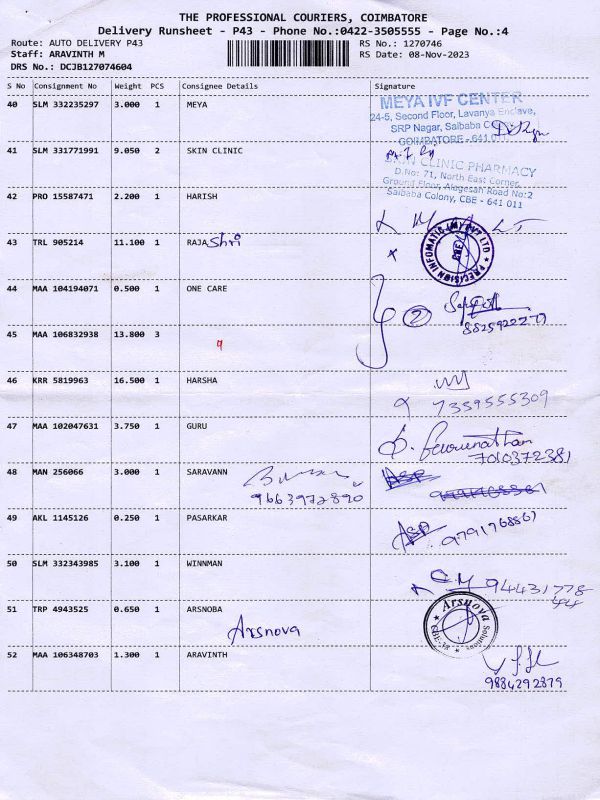 THE PROFESSIONAL COURIERS, COIMBATORE
Delivery Runsheet - P43 - Phone No.:0422-3505555 - Page No.:4
Route: AUTO DELIVERY P43 RS No.: 1270746
Staff: ARAVINTH M RS Date: 08-Nov-2023
DRS No.: DCJB127074604
S No Consignment No Weight PCS Consignee Details Signature
40 SLM 332235297 3.000 1 MEYA
MEYA IVF CENTER
24-5, Second Floor, Lavanya Enclave,
SRP Nagar, Saibaba
COIMBATORE - 641 011
41 SLM 331771991 9.050 2 SKIN CLINIC
SKIN CLINIC PHARMACY
D.No: 71, North East Corner,
Ground Floor, Alagesan Road No:2
Saibaba Colony, CBE - 641 011
42 PRO 15587471 2.200 1 HARISH
43 TRL 905214 11.100 1 RAJA Shri
PRECISION INFOMATIC (M) PVT LTD
CBE
44 MAA 104194071 0.500 1 ONE CARE
2
45 MAA 106832938 13.800 3
9
46 KRR 5819963 16.500 1 HARSHA
7359555309
47 MAA 102047631 3.750 1 GURU
7010372381
48 MAN 256066 3.000 1 SARAVANN
9663972890
49 AKL 1145126 0.250 1 PASARKAR
9791768567
50 SLM 332343985 3.100 1 WINNMAN
94431778
44
51 TRP 4943525 0.650 1 ARSNOBA
Arsnova
Arsnova Solutions
CBE-38
52 MAA 106348703 1.300 1 ARAVINTH
9884292879